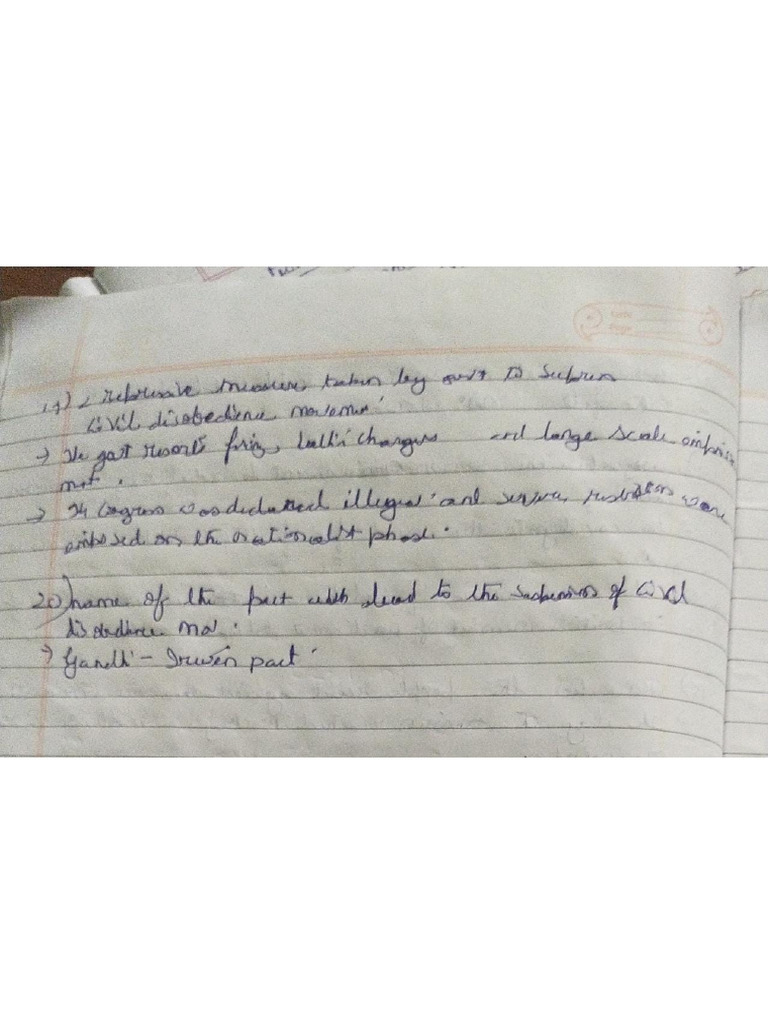 19) 2 repressive measures taken by govt to supress
civil disobedience movement.
→ The govt resorts firing, lathi charges and large scale imprison
mnt.
→ The Congress was declared illegal and serious restrictions were
imbosed on the nationalist phase.
20) name of the pact which lead to the suspension of Civil
disobedience mov.
→ Gandhi - Irwin pact.